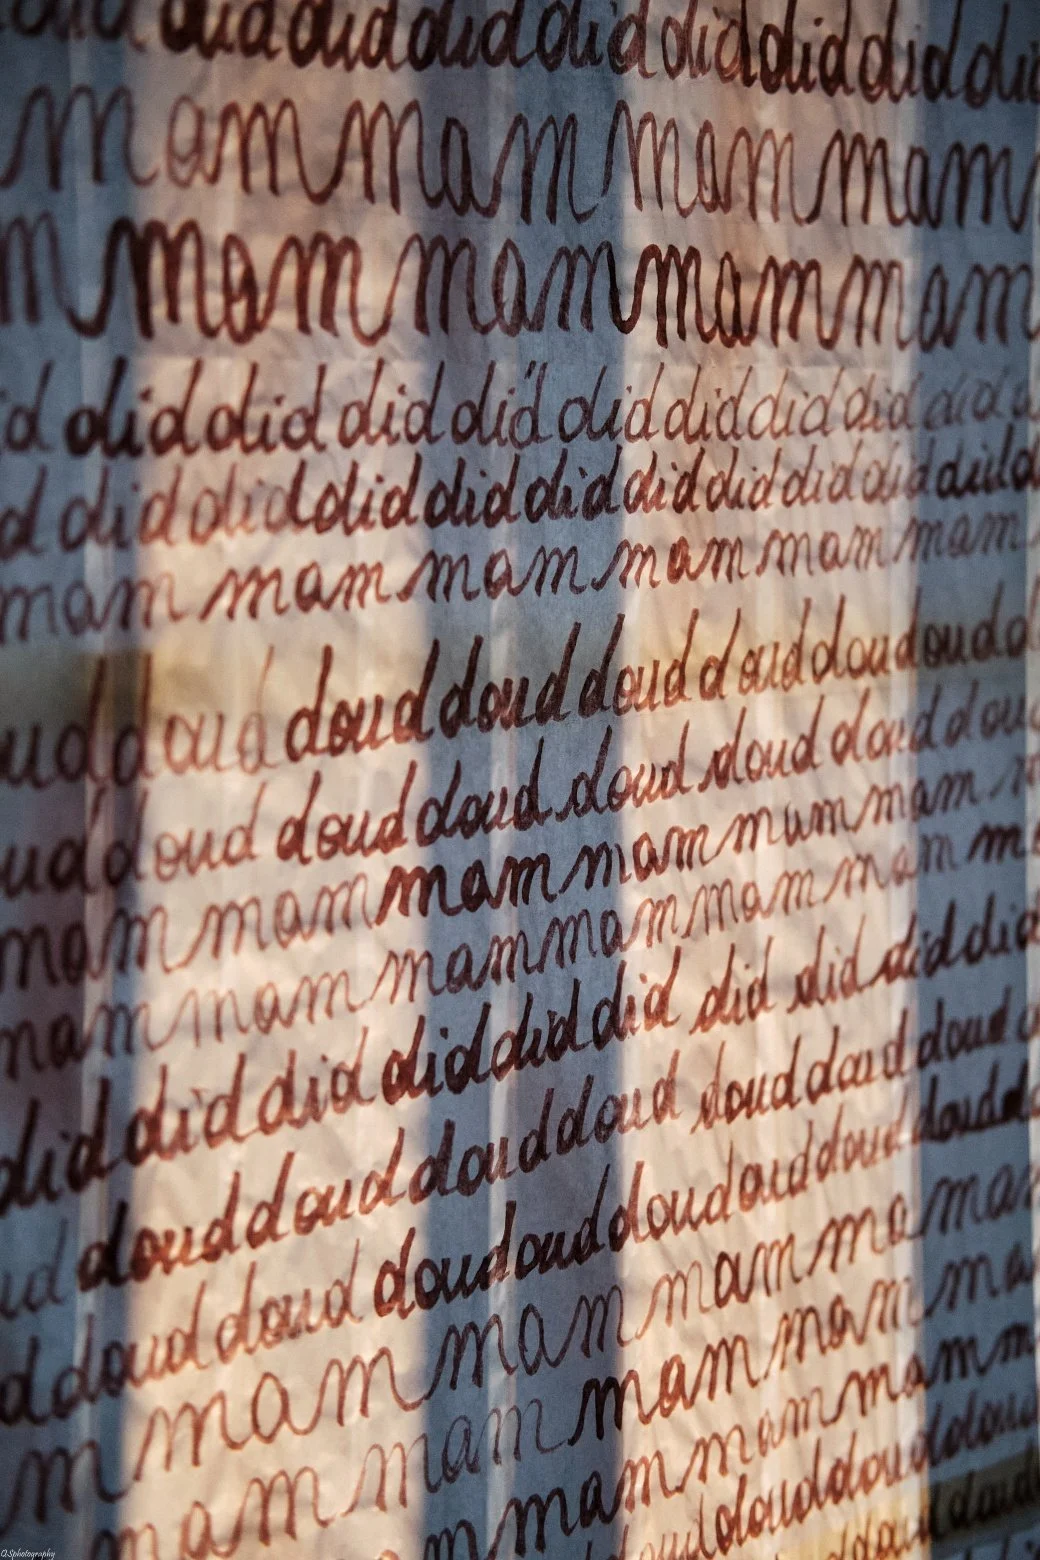 did did did did did did did
mam mam mam mam
mam mam mam mam
did did did did did did did did
did did did did did did did did did
mam mam mam mam mam mam
doud doud doud doud doud doud doud
doud doud doud doud doud doud doud
mam mam mam mam mam mam
mam mam mam mam mam mam
did did did did did did did did did
doud doud doud doud doud doud doud
doud doud doud doud doud doud doud
mam mam mam mam
mam mam mam mam
mam mam mam mam
doud doud doud doud
doud doud
Q.Sphotography